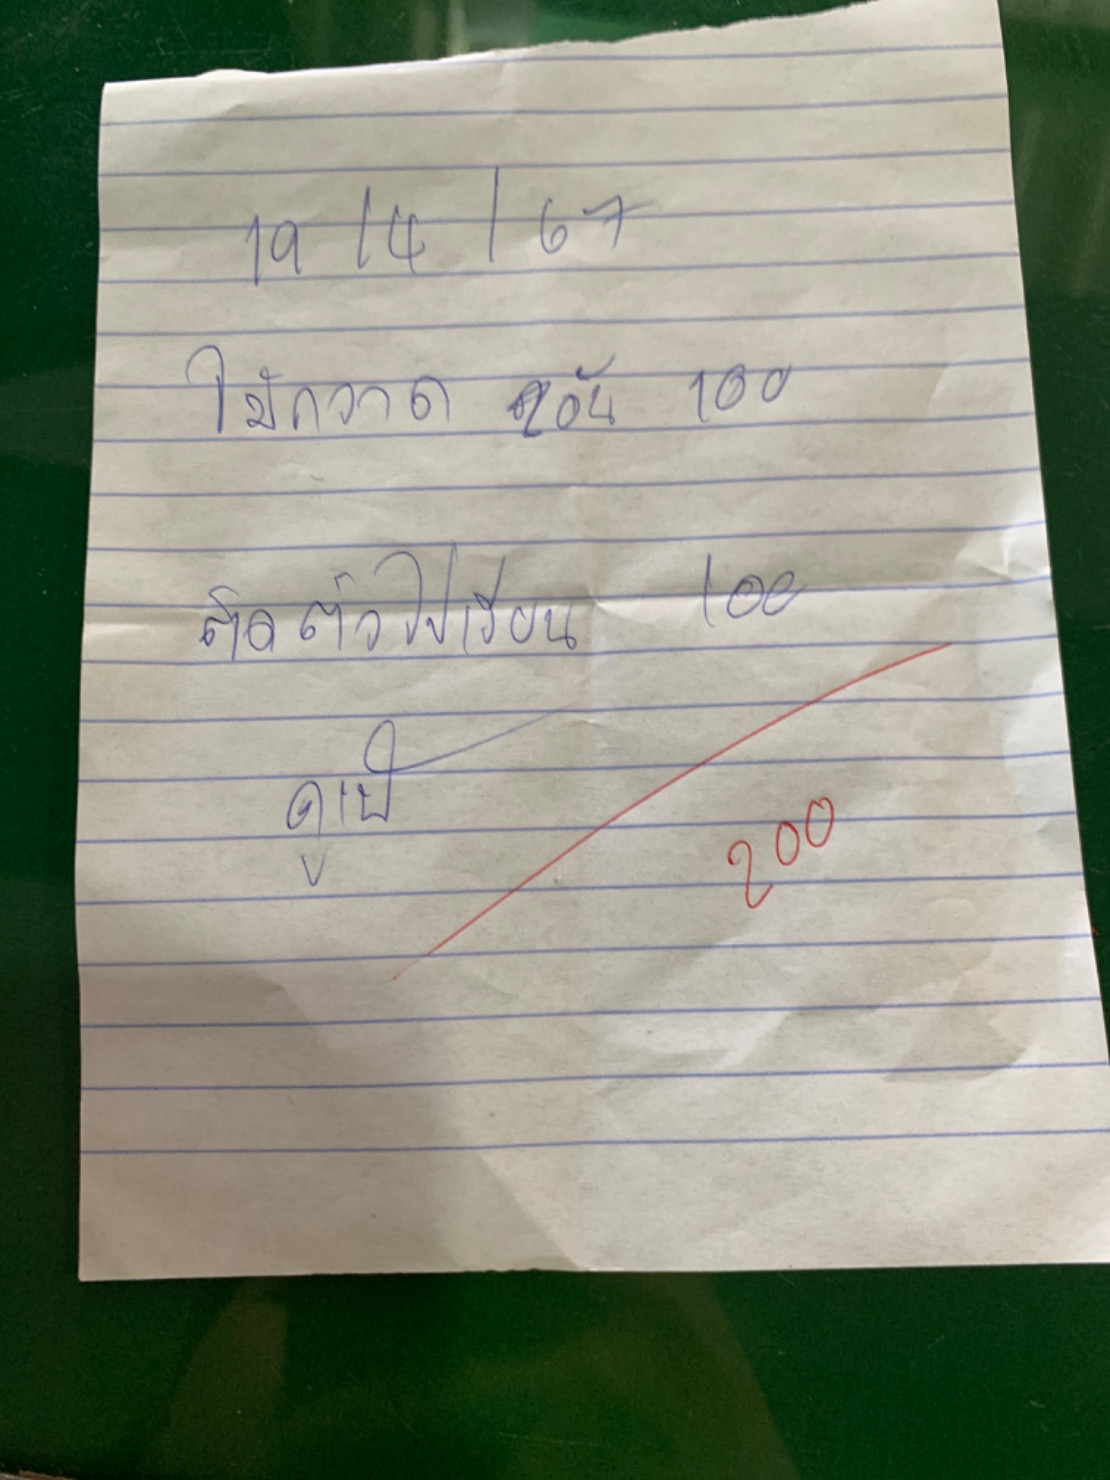 19 /4 / 67
ไม้กวาด 2อัน 100
ติดตัวไปเรียน 100
200